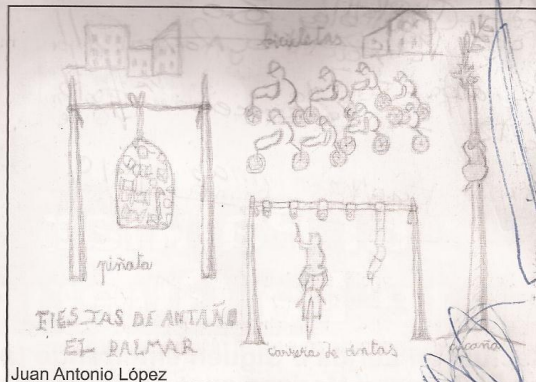 bicicletas
piñata
FIESTAS DE ANTAÑO
EL PALMAR
carrera de cintas
cucaña
Juan Antonio López